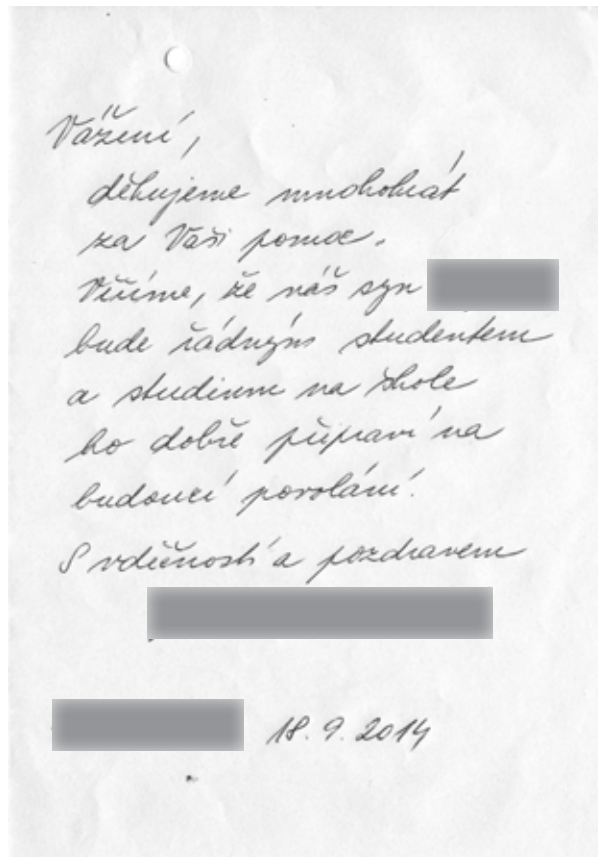 Vážení,
děkujeme mnohokrát
za Vaši pomoc.
Věříme, že náš syn
bude řádným studentem
a studium na škole
ho dobře připraví na
budoucí povolání.
S vděčností a pozdravem
18. 9. 2014